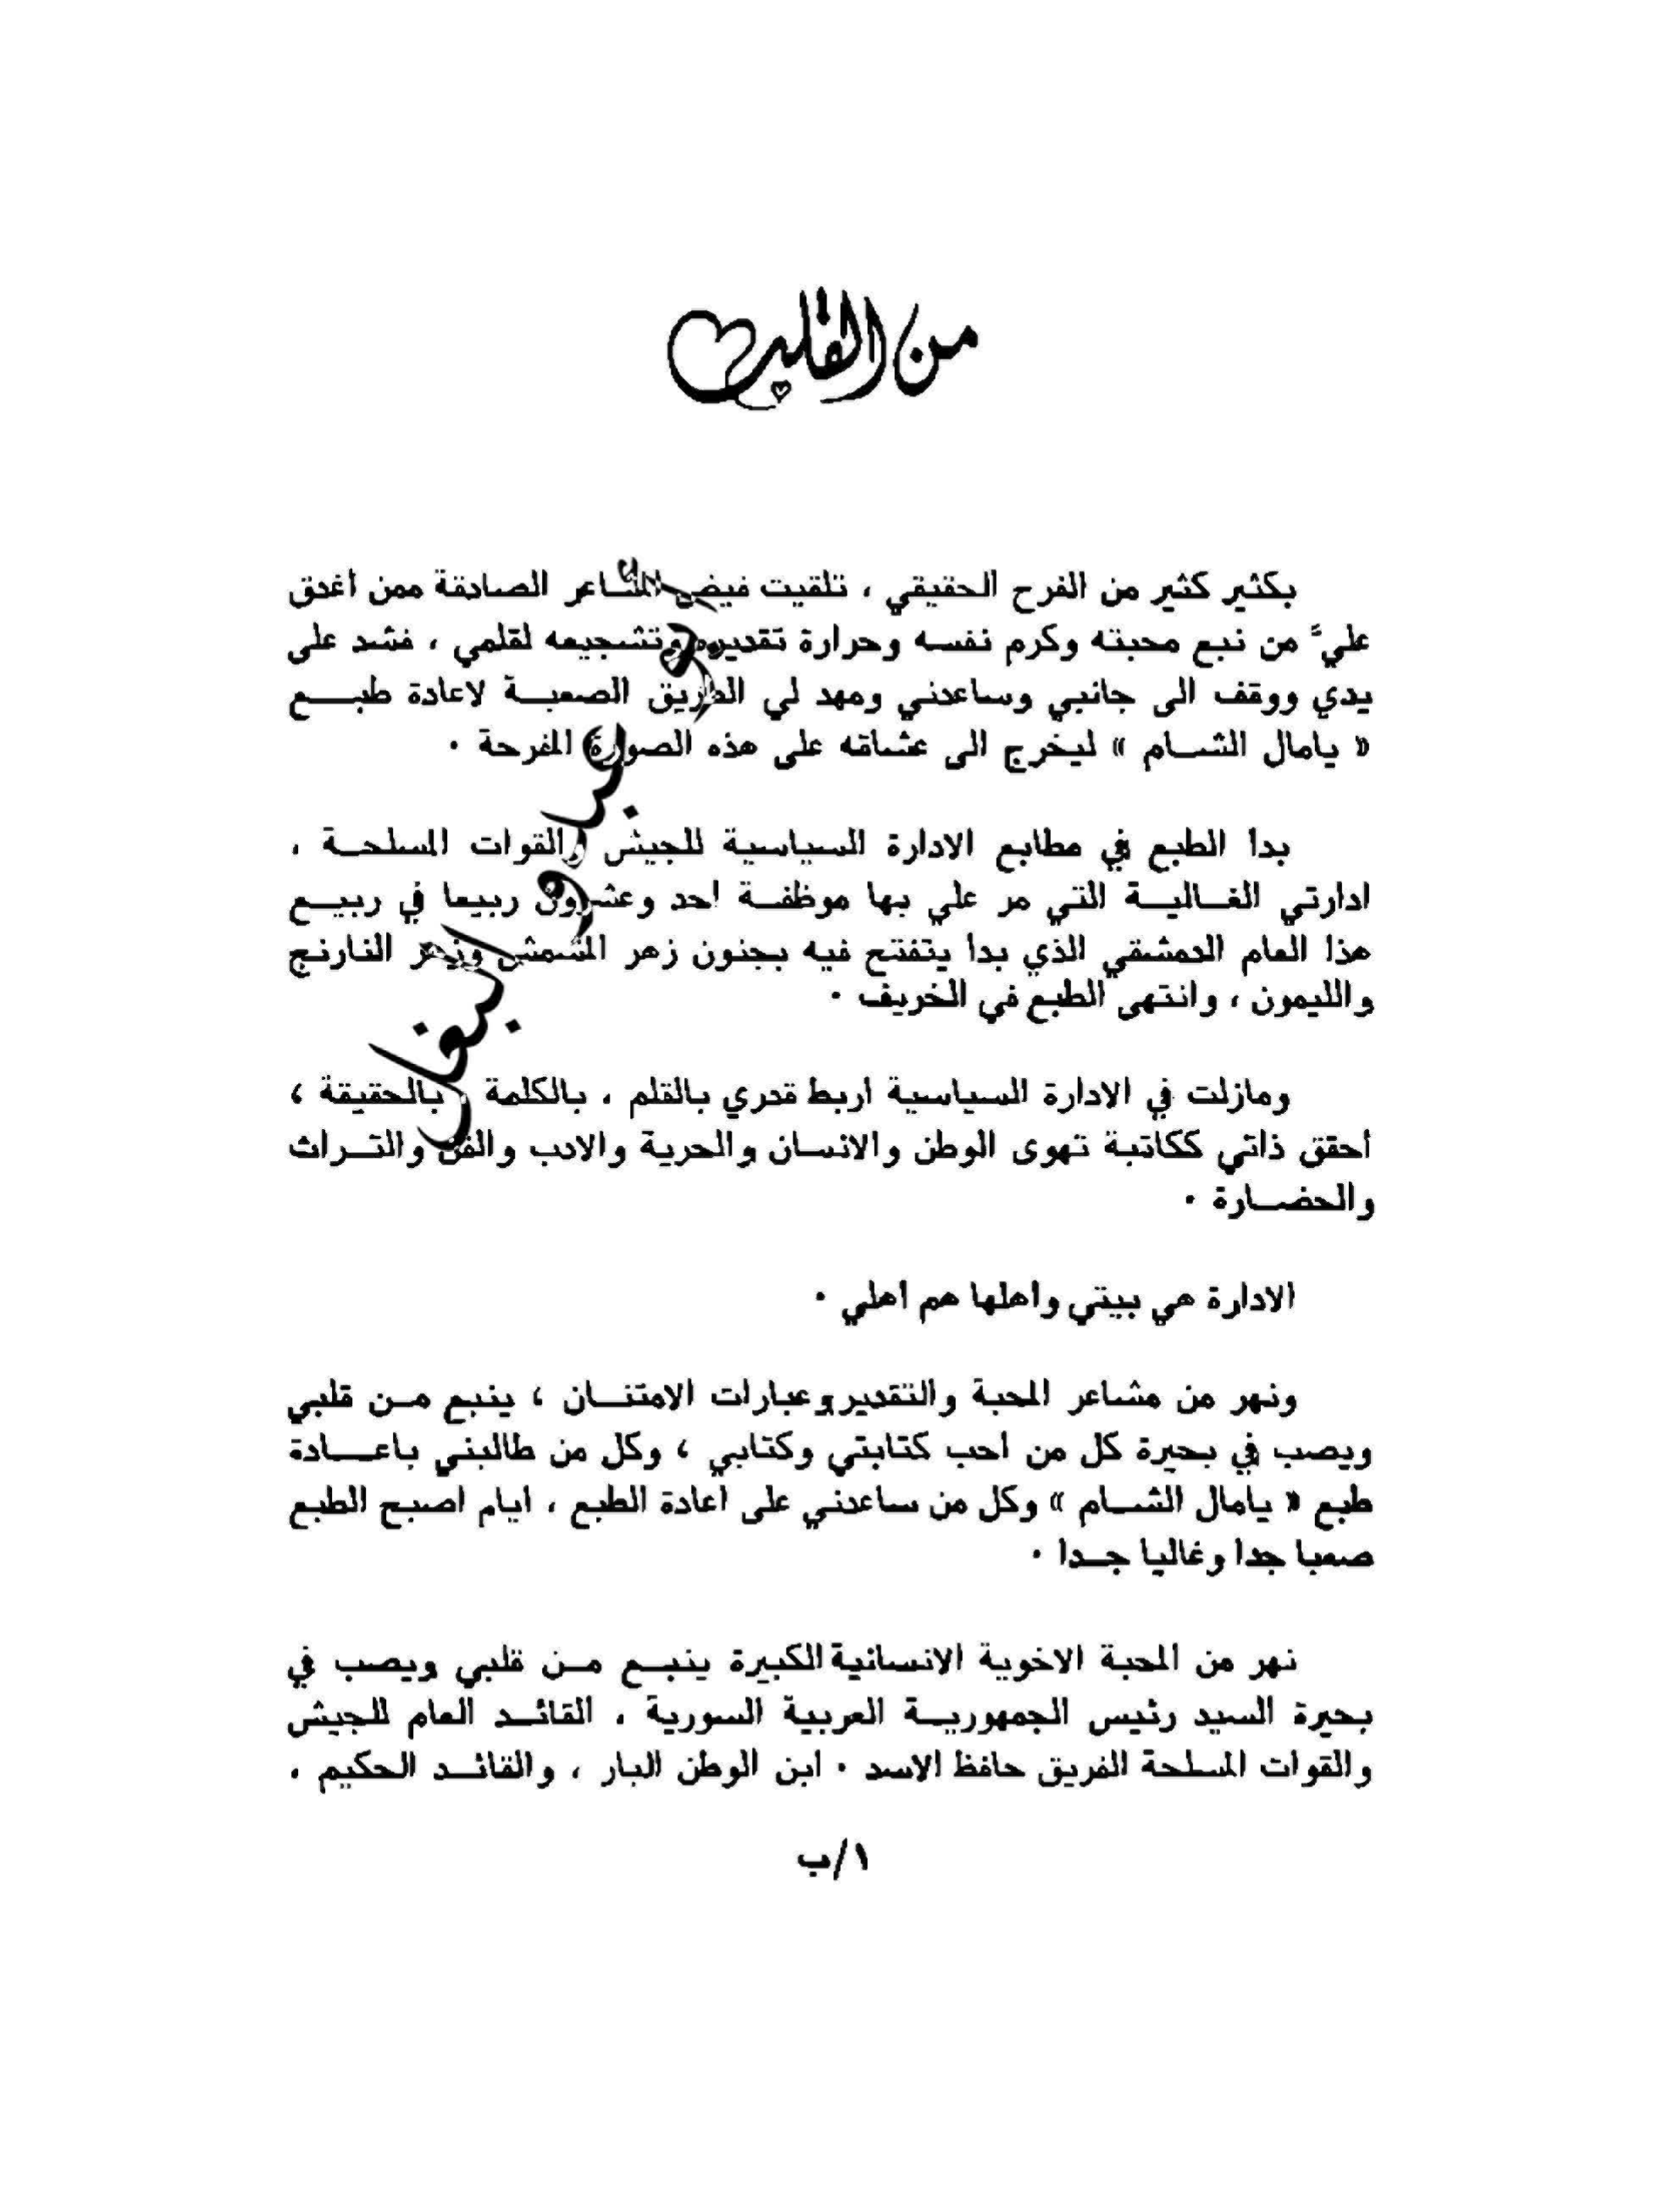 من القلب
بكثير كثير من الفرح الحقيقي ، تلقيت فيض المشاعر الصادقة ممن أغدق
عليّ من نبع محبته وكرم نفسه وحرارة تقديره وتشجيعه لقلمي ، فشد على
يدي ووقف الى جانبي وساعدني ومهد لي الطريق الصعبة لاعادة طبع
« يامال الشام » ليخرج الى عشاقه على هذه الصورة المفرحة .
بدأ الطبع في مطابع الادارة السياسية للجيش والقوات المسلحة .
ادارتي الغالية التي مر علي بها موظفة احد وعشرون ربيعا في ربيع
هذا العام الدمشقي الذي بدا يتفتح فيه بجنون زهر المشمش وزهر النارنج
والليمون ، وانتهى الطبع في الخريف .
ومازلت في الادارة السياسية اربط قدري بالقلم ، بالكلمة ، بالحقيقة ،
أحقق ذاتي ككاتبة تهوى الوطن والانسان والحرية والادب والفن والتراث
والحضارة .
الادارة هي بيتي وأهلها هم أهلي .
ونهر من مشاعر المحبة والتقدير وعبارات الامتنان ، ينبع من قلبي
ويصب في بحيرة كل من أحب كتابتي وكتابي ، وكل من طالبني باعادة
طبع « يامال الشام » وكل من ساعدني على اعادة الطبع ، ايام اصبح الطبع
صعبا جدا وغاليا جدا .
نهر من المحبة الاخوية الانسانية الكبيرة ينبع من قلبي ويصب في
بحيرة السيد رئيس الجمهورية العربية السورية ، القائد العام للجيش
والقوات المسلحة الفريق حافظ الاسد . ابن الوطن البار ، والقائد الحكيم ،
١/ب